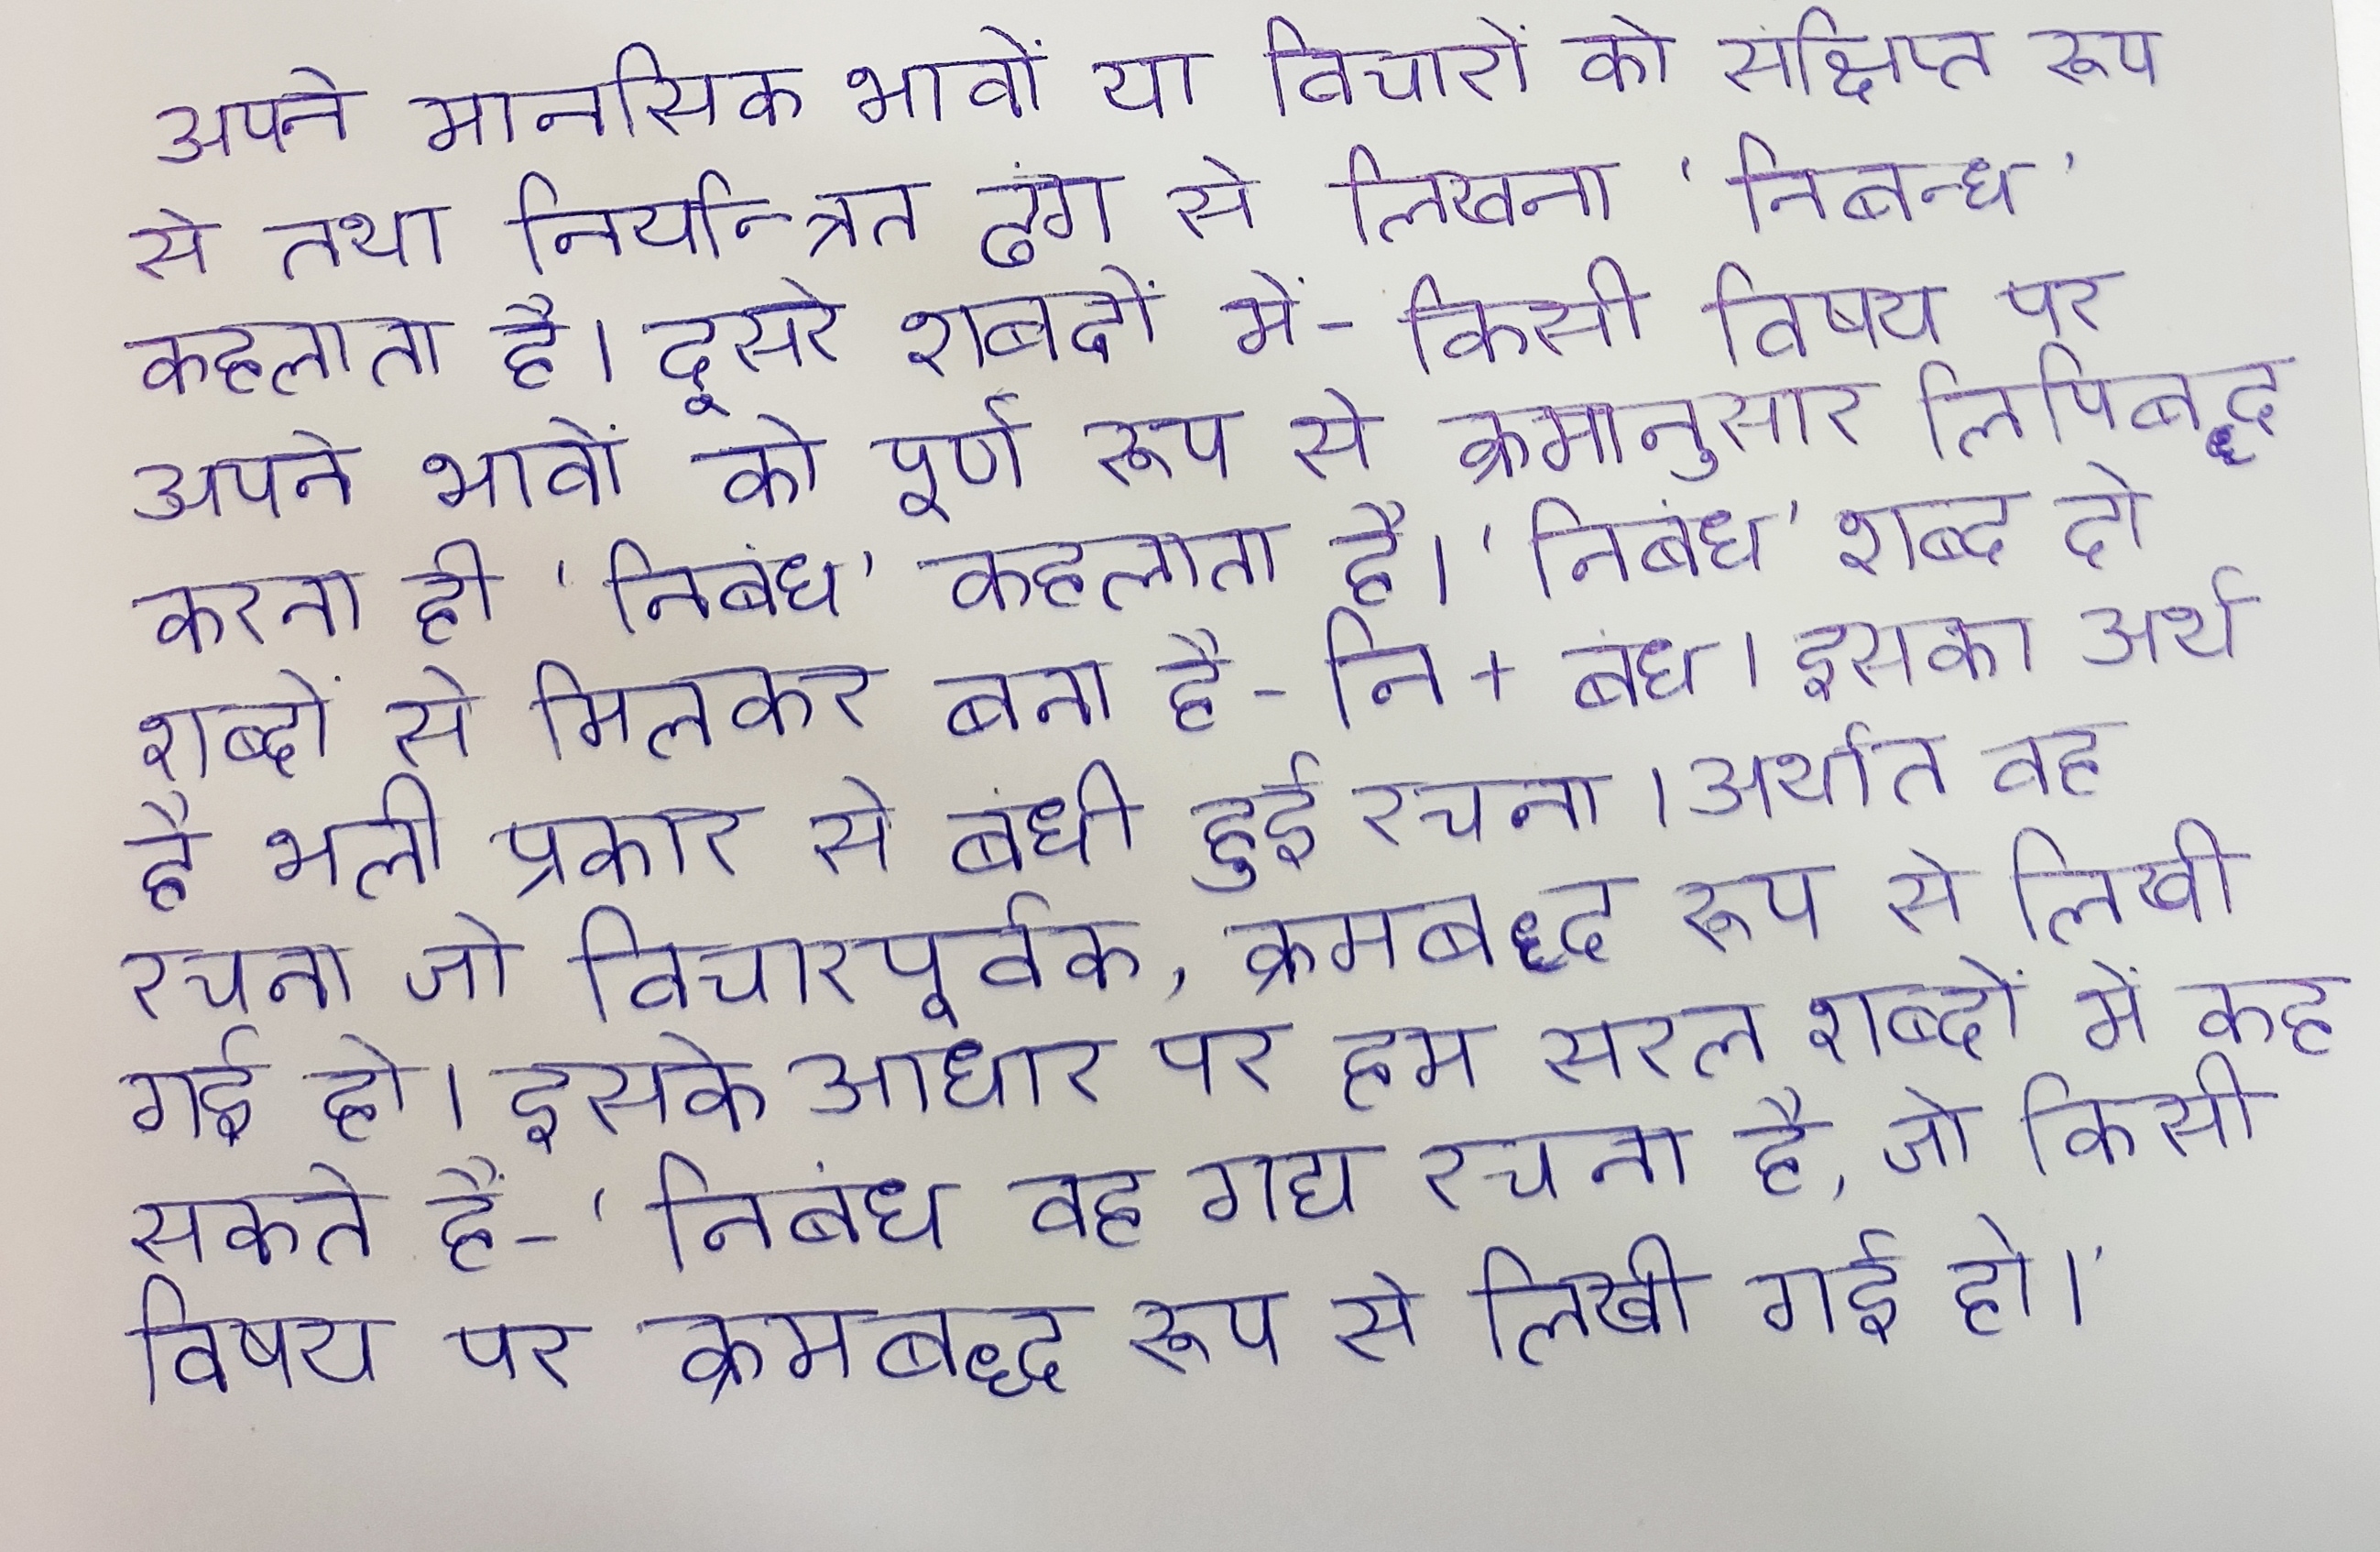 अपने मानसिक भावों या विचारों को संक्षिप्त रूप
से तथा नियन्त्रित ढंग से लिखना 'निबन्ध'
कहलाता है। दूसरे शबदों में- किसी विषय पर
अपने भावों को पूर्ण रूप से क्रमानुसार लिपिबद्ध
करना ही 'निबंध' कहलाता है। 'निबंध' शब्द दो
शब्दों से मिलकर बना है- नि + बंध। इसका अर्थ
है भली प्रकार से बंधी हुई रचना। अर्थात वह
रचना जो विचारपूर्वक, क्रमबद्ध रूप से लिखी
गई हो। इसके आधार पर हम सरल शब्दों में कह
सकते हैं- 'निबंध वह गद्य रचना है, जो किसी
विषय पर क्रमबद्ध रूप से लिखी गई हो।'